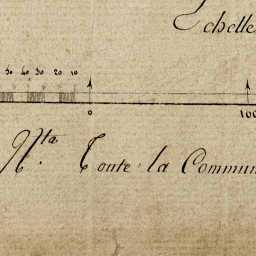 Echelle
50 40 30 20 10
0 100
Nta. Toute la Commun